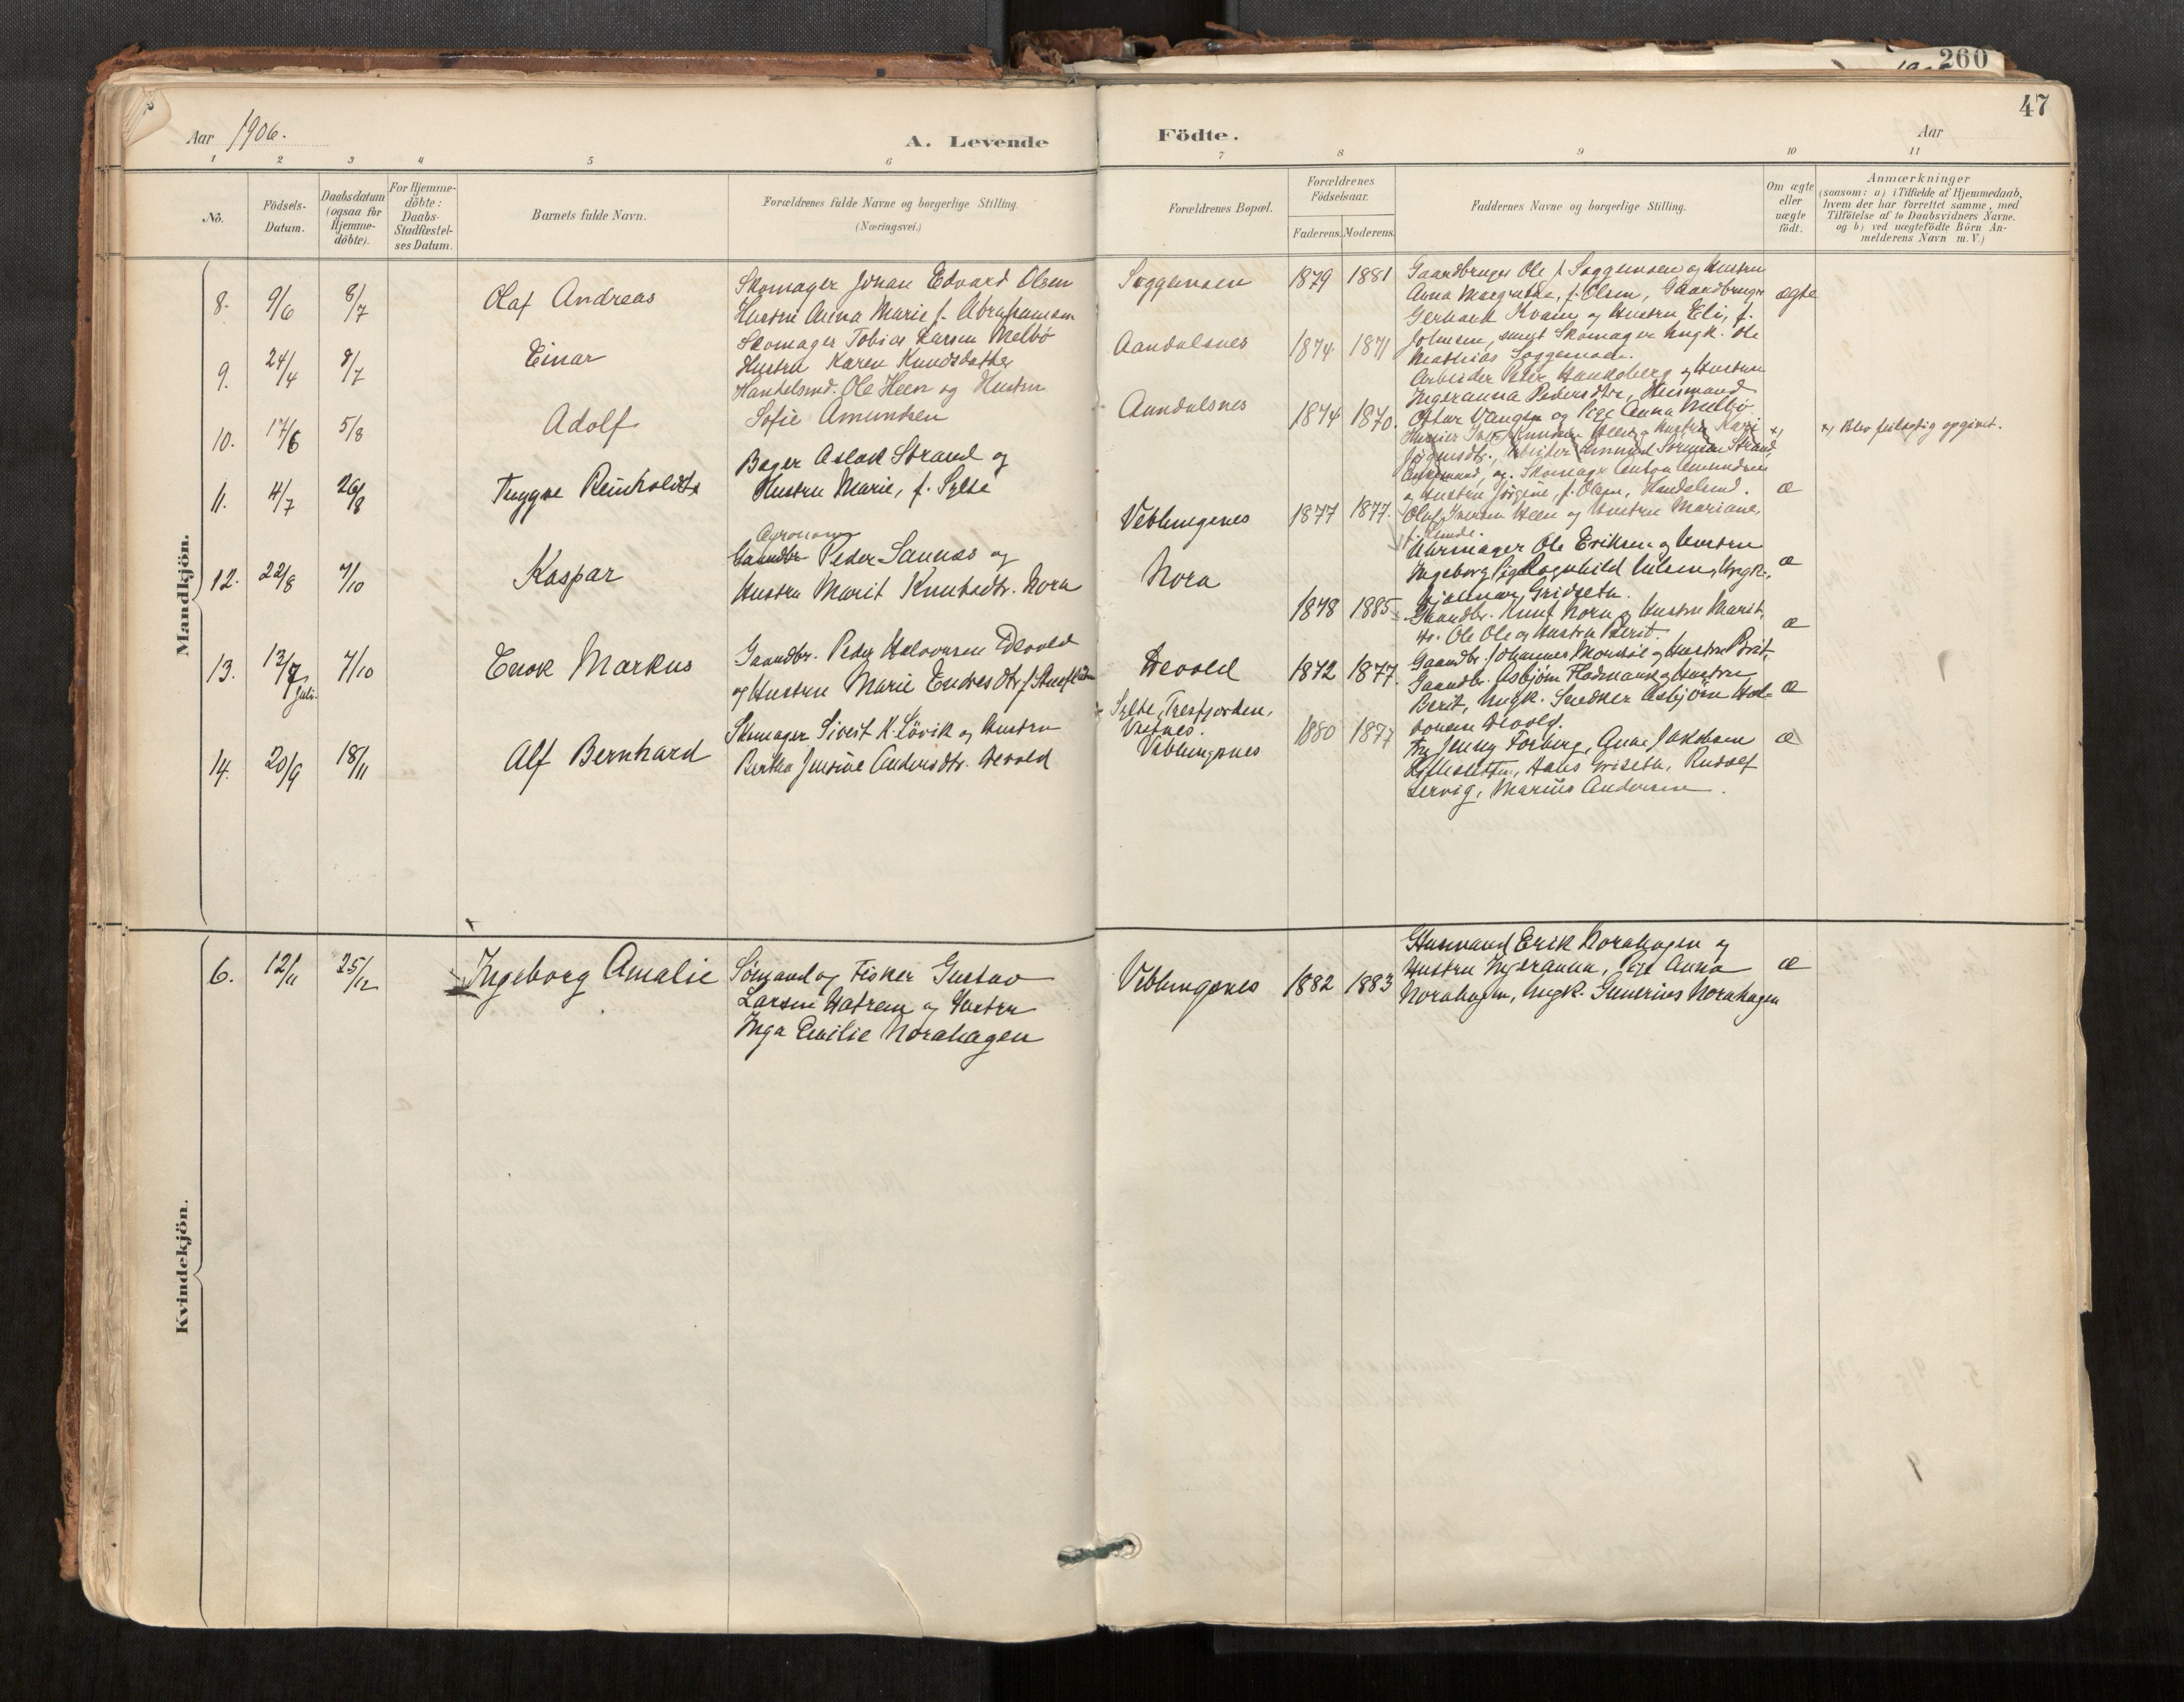 260
47
Aar 1906.
A. Levende
Födte.
Aar
1 2 3 4 5 6 7 8 9 10 11
No.
Födsels-
Datum.
Daabsdatum
(ogsaa for
Hjemme-
döbte).
For Hjemme-
döbte:
Daabs-
Stadfæstel-
ses Datum.
Barnets fulde Navn.
Forældrenes fulde Navne og borgerlige Stilling.
(Næringsvei.)
Forældrenes Bopæl.
Forældrenes
Födselsaar.
Faderens. Moderens.
Faddernes Navne og borgerlige Stilling.
Om ægte
eller
uægte
födt.
Anmærkninger
(saasom: a) i Tilfælde af Hjemmedaab,
hvem der har forrettet samme, med
Tilföielse af to Daabsvidners Navne.
og b) ved uægtefödte Börn An-
melderens Navn m. V.)
Mandkjön.
8. 9/6 8/7 Olaf Andreas
Skomager Johan Edvard Olsen
Hustru Anna Marie f. Abrahamsen
Soggemoen 1879 1881
Gaardbruger Ole J. Soggemoen og Hustru
Anna Margrethe, f. Olsen, Gaardbruger
Gerhard Kvam og Hustru Eli, f.
Johnsen, samt Skomager Ungk. Ole
Mathias Soggemoen.
ægte
9. 24/4 8/7 Einar
Skomager Tobias Larsen Melbö
Hustru Karen Knudsdatter
Aandalsnes 1874 1871
Arbeider Peter og Hustru
Ingeranna Pedersdtr., Husmand
Vangen og Pige Anna Melbö
10. 17/6 5/8 Adolf
Handelsmd. Ole Heen og Hustru
Sofie Amundsen
Aandalsnes 1874 1870.
Iver Heen og Hustru Kari x)
Arbeider Amund Strand,
og Skomager Anton Amundsen
og Hustru Jörgine, f. Olsen, Handelsmd.
Olaf Iversen Heen og Hustru Mariane,
f. Lunde.
æ
x) Blev feilagtig opgivet.
11. 4/7 26/8 Trygve Reinholdt
Bager Aslak Strand og
Hustru Marie, f. Sylte
Veblungsnes 1877 1877.
Uhrmager Ole Eriksen og Hustru
Ingeborg, Pige Ragnhild Nilsen, Ungk.
Hjalmar Gridseth.
æ
12. 22/8 7/10 Kaspar
Agronom
Gaardbr. Peder Sannæs og
Hustru Marit Knutsdtr. Nora
Nora 1878 1885
Gaardbr. Knut Nora og Hustru Marit,
Ole Ole og Hustru Berit.
æ
13. 13/7 Juli 7/10 Enok Markus
Gaardbr. Peder Halvorsen Devold
og Hustru Marie Endresdtr.
Devold 1872 1877.
Gaardbr. Johannes og Hustru Brit,
Gaardbr. Asbjörn Fladmark og Hustru
Berit, Ungk. Snedker Asbjörn Hal-
vorsen Devold.
æ
14. 20/9 18/11 Alf Bernhard
Skomager Sivert K. Lövik og Hustru
Bertha Jensine Andersdtr. Devold
Sylte, Tresfjorden,
Vestnes.
Veblungsnes 1880 1877
Fru Jenny Forberg, Anne Jakobsen
Hans Griseth, Rudolf
Lervig, Marius Andersen.
æ
Kvindekjön.
6. 12/11 25/12 Ingeborg Amalie
Sömand og Fisker Gustav
Larsen Hatrem og Hustru
Inga Emilie Norahagen
Veblungsnes 1882 1883
Husmand Erik Norahagen og
Hustru Ingeranna, Pige Anna
Norahagen, Ungk. Gunerius Norahagen
æ